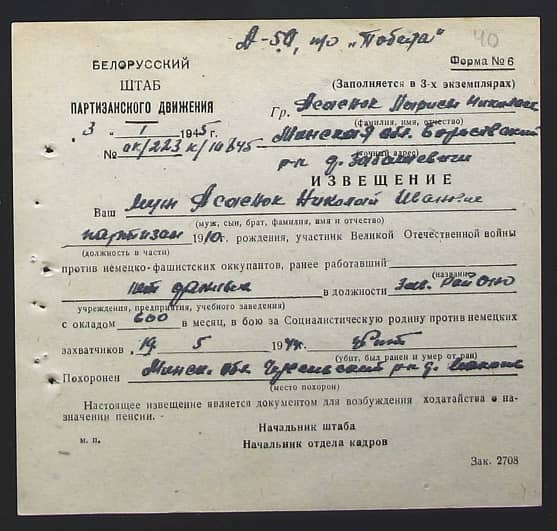 Д-50, п/о „Победа“ 40
БЕЛОРУССКИЙ
ШТАБ
ПАРТИЗАНСКОГО ДВИЖЕНИЯ
Форма № 6
(Заполняется в 3-х экземплярах)
Гр.
(фамилия, имя, отчество)
3 1 1945 г.
Минская обл.
№
р-н д.
(точный адрес)
ИЗВЕЩЕНИЕ
Ваш муж Асаченок Николай
(муж, сын, брат, фамилия, имя и отчество)
партизан 1910 г. рождения, участник Великой Отечественной войны
(должность в части)
против немецко-фашистских оккупантов, ранее работавший
(название
нет данных в должности Зав. РайОно
учреждения, предприятия, учебного заведения)
с окладом 600 в месяц, в бою за Социалистическую родину против немецких
захватчиков 19 5 1944 г. убит
(убит, был ранен и умер от ран)
Похоронен Минск. обл. р-н д.
(место похорон)
Настоящее извещение является документом для возбуждения ходатайства о на-
значении пенсии.
Начальник штаба
м. п.
Начальник отдела кадров
Зак. 2708